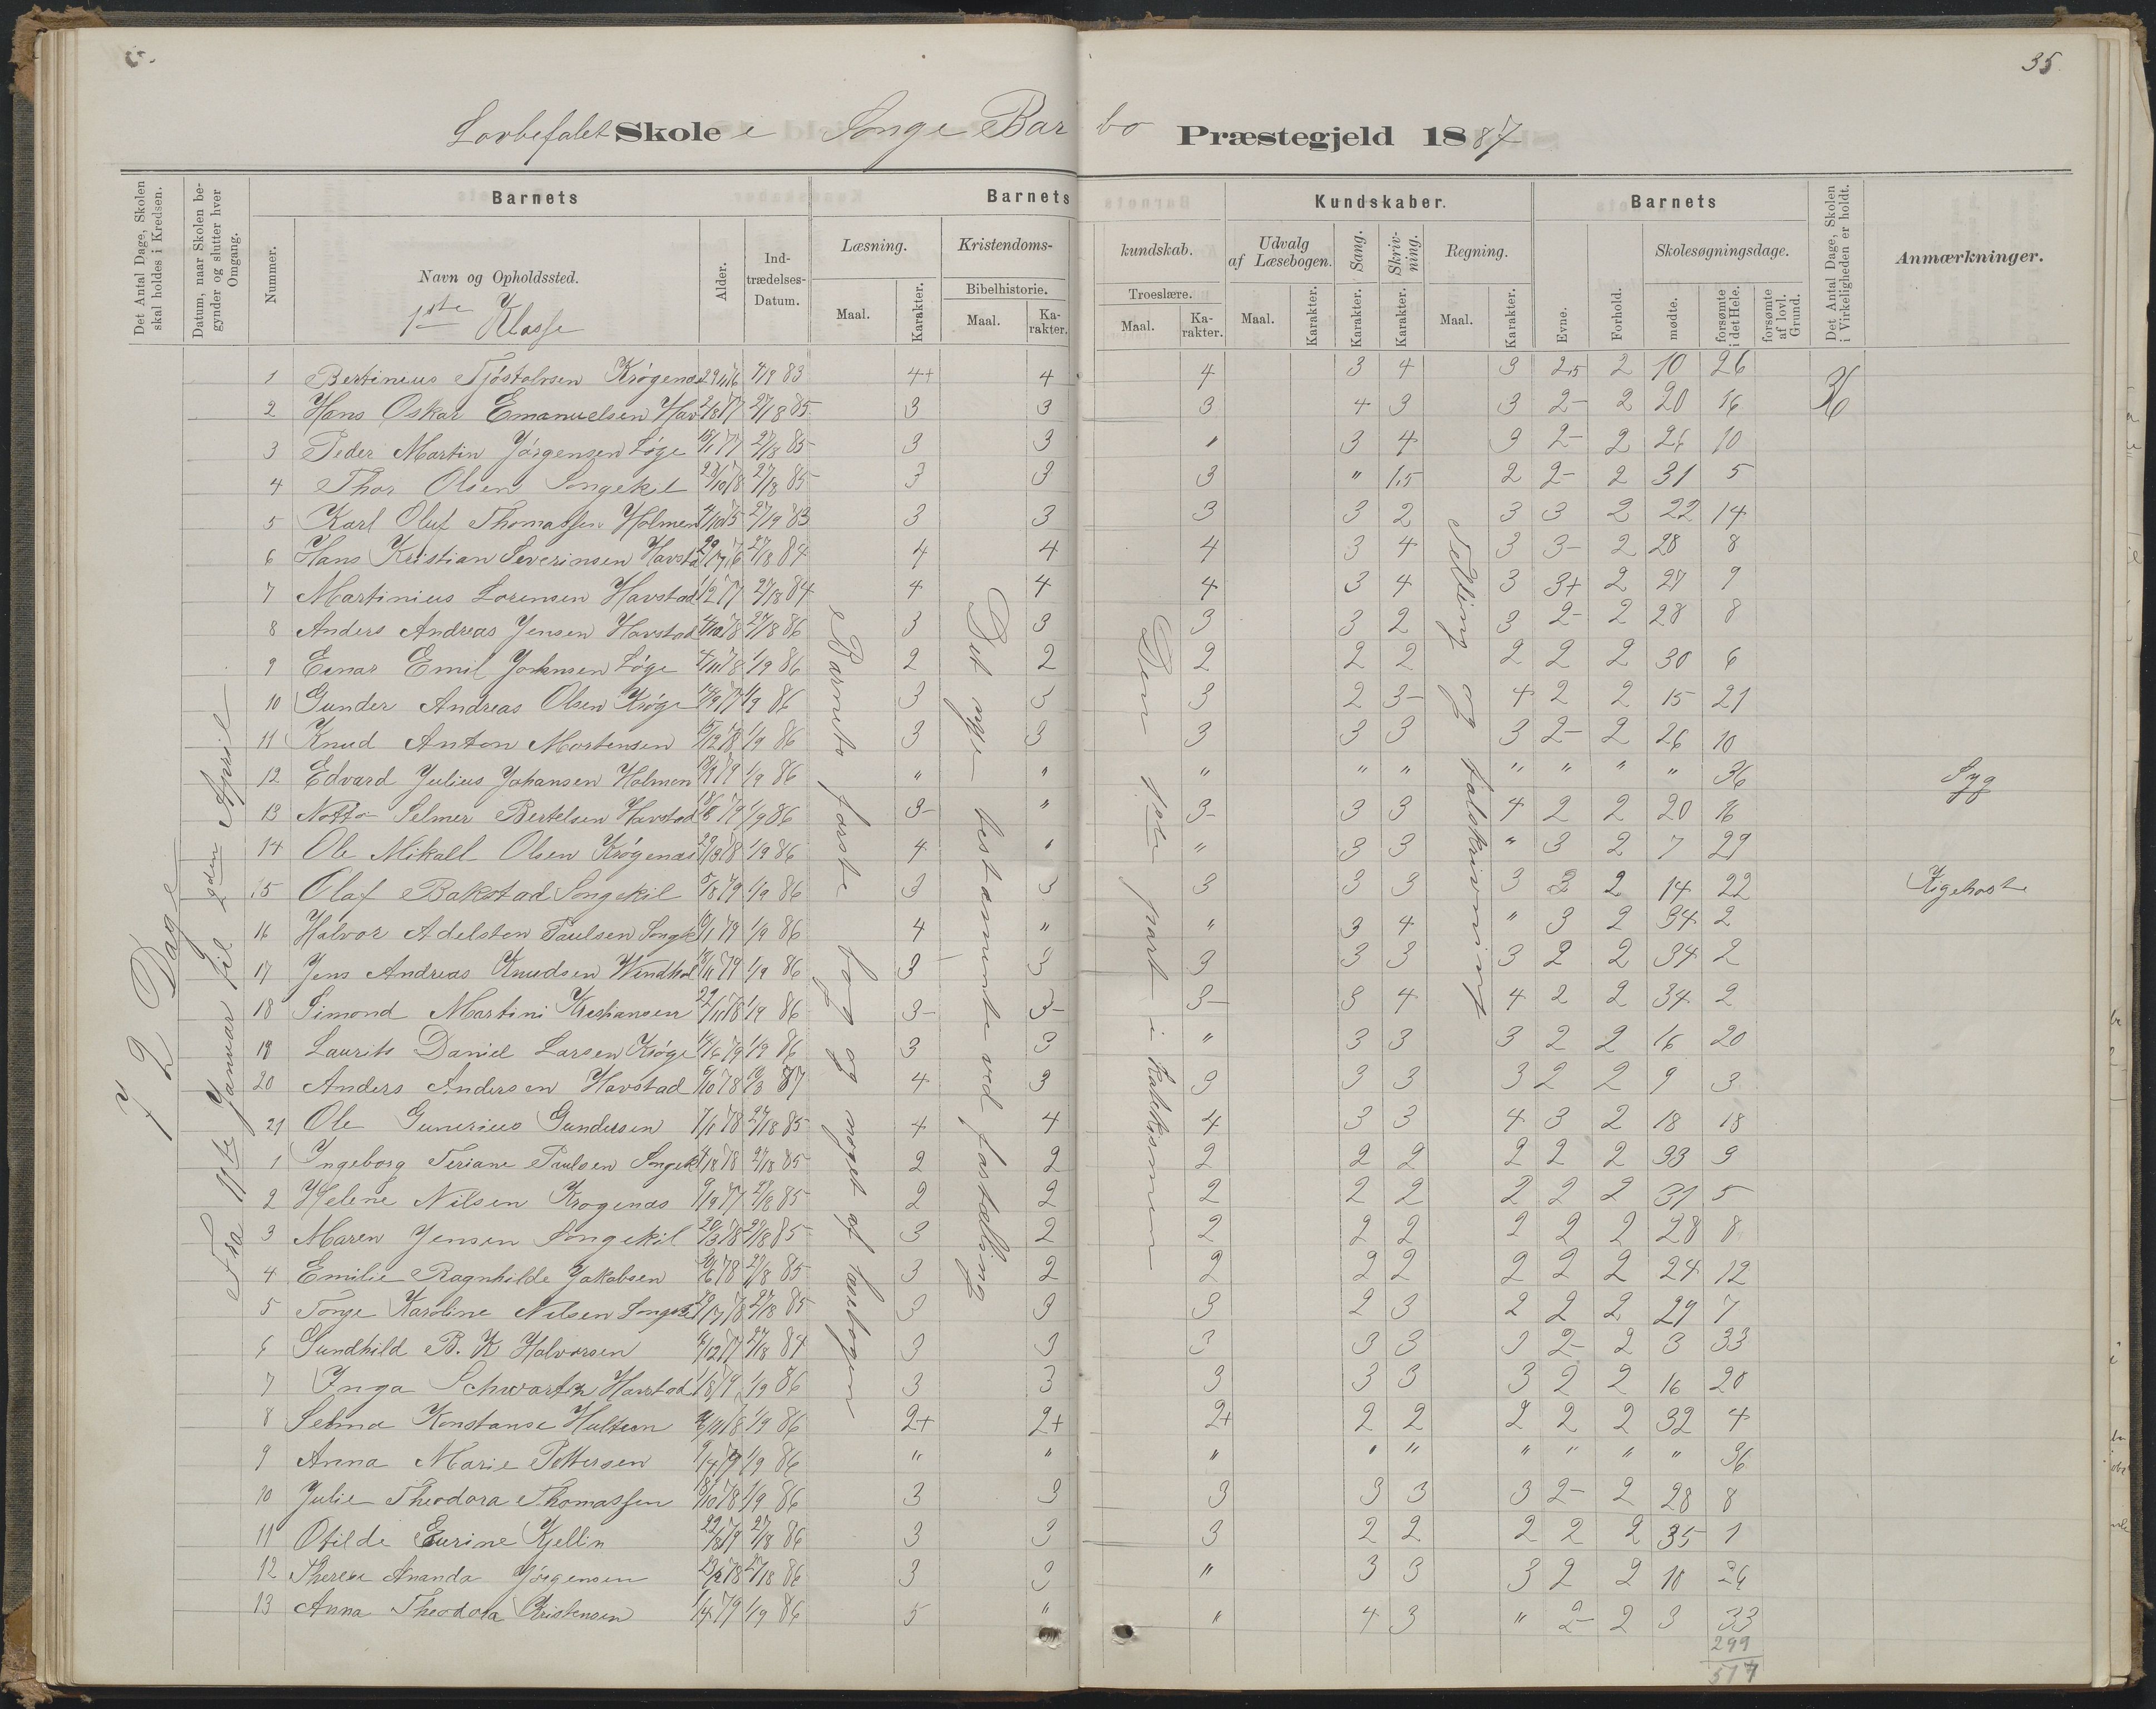 35
Lovbefalet Skole i Songe Barbo Præstegjeld 1887
Det Antal Dage, Skolen skal holdes i Kredsen.
Datum, naar Skolen begynder og slutter hver Omgang.
Barnets
Barnets Kundskaber.
Barnets
Nummer.
Navn og Opholdssted.
Alder.
Indtrædelses-Datum.
Læsning.
Kristendomskundskab.
Udvalg af Læsebogen.
Sang.
Skrivning.
Regning.
Evne.
Forhold.
Skolesøgningsdage.
Det Antal Dage, Skolen i Virkeligheden er holdt.
Anmærkninger.
Bibelhistorie.
Troeslære.
Maal. Karakter. Maal. Karakter. Maal. Karakter. Maal. Karakter. Karakter. Karakter. Maal. Karakter.
mødte. forsømte i det Hele. forsømte af lovl. Grund.
1ste Klasse
72 Dage
Fra 11te Januar til April
Barnets første bog og noget af læsebogen
Det nye testamente ved fortælling
Den 1ste part i Katekismen
Tælling og talskrivning
1 Bertinius Krøgenæs 83 4+ 4 4 3 4 3 2,5 2 10 26 36
2 Hans Oskar Emanuelsen Hav 2/8 77 27/8 85 3 3 3 4 3 3 2- 2 20 16
3 Peder Martin Jørgensen Løge 77 27/8 85 3 3 " 3 4 3 2- 2 26 10
4 Thor Olsen Songekil 27/8 85 3 3 3 " 1,5 2 2- 2 31 5
5 Karl Oluf Thomassen Holmen 83 3 3 3 3 2 3 3 2 22 14
6 Hans Kristian Severinsen Havsta 27/8 84 4 4 4 3 4 3 3- 2 28 8
7 Martinius Lorensen Havstad 77 27/8 84 4 4 4 3 4 3 3+ 2 27 9
8 Anders Andreas Jensen Havstad 78 27/8 86 3 3 3 3 2 3 2- 2 28 8
9 Einar Emil Johnsen Løge 78 1/9 86 2 2 2 2 2 2 2 2 30 6
10 Gunder Andreas Olsen Krøge 77 1/9 86 3 3 3 2 3- 4 2 2 15 21
11 Knud Anton Mortensen 78 1/9 86 3 3 3 3 3 3 2- 2 26 10
12 Edvard Julius Johansen Holmen 79 1/9 86 " " " " " " " " " 36 Syg
13 Selmer Bertelsen Havstad 79 1/9 86 3- " 3- 3 3 4 2 2 20 16
14 Ole Mikall Olsen Krøgenæs 78 1/9 86 4 " " 3 3 " 3 2 7 29
15 Olaf Bakstad Songekil 79 1/9 86 3 3 3 3 3 3 3 2 14 22 Kigehoste
16 Halvor Adelsten Paulsen Songk 79 1/9 86 4 " " 3 4 " 3 2 34 2
17 Jens Andreas Knudsen 79 1/9 86 3 3 3 3 3 3 2 2 34 2
18 Simond Martini Kristiansen 78 1/9 86 3- 3- 3- 3 4 4 2 2 34 2
19 Laurits Daniel Larsen Krøge 79 1/9 86 3 3 " 3 3 3 2 2 16 20
20 Anders Andersen Havstad 78 87 4 3 3 3 3 3 2 2 9 3
21 Ole Gunerius Gundersen 78 27/8 85 4 4 4 3 3 4 3 2 18 18
1 Ingeborg Teriane Paulsen Songek 78 27/8 85 2 2 2 2 2 2 2 2 33 3
2 Helene Nilsen Krogenæs 77 27/8 85 2 2 2 2 2 2 2 2 31 5
3 Maren Jensen Songekil 78 27/8 85 3 2 2 2 2 2 2 2 28 8
4 Emilie Ragnhilde Jakobsen 78 27/8 85 3 2 2 2 2 2 2 2 24 12
5 Tonge Karoline Nilsen 78 27/8 85 3 3 3 2 3 2 2 2 29 7
6 Gundhild B. K Halvorsen 77 27/8 84 3 3 3 3 3 3 2- 2 3 33
7 Inga Schwartz Havstad 79 1/9 86 3 3 3 3 3 3 2 2 16 20
8 Selma Konstanse 78 1/9 86 2+ 2+ 2+ 2 2 2 2 2 32 4
9 Anna Marie Pettersen 79 1/9 86 " " " " " " " " " 36
10 Julie Theodora Thomassen 78 1/9 86 3 3 3 3 3 3 2- 2 28 8
11 Otilde Eurine Kjellin 79 27/8 86 3 3 3 2 2 2 2 2 35 1
12 Therese Ananda Jørgensen 78 27/8 86 3 3 " 3 3 3 2 2 10 26
13 Anna Theodora Kristensen 79 1/9 86 5 " " 4 3 " 2- 2 3 33
299
517